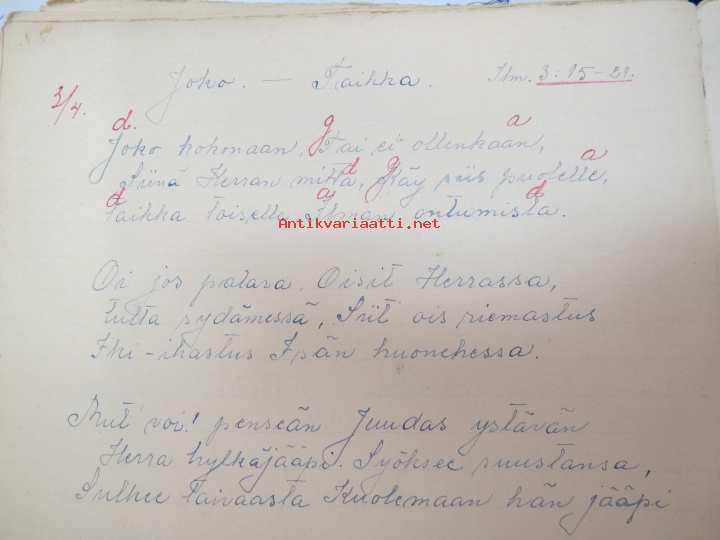 Joko. — Taikka. Ilm. 3:15-21.
3/4. d. g a
Joko kokonaan, Tai ei ollenkaan,
d g a
Siinä Herran mitta, Käy siis puolelle,
d a d
taikka toiselle, ontumista.
Antikvariaatti.net
Oi jos palava Oisit Herrassa,
tulta sydämessä, Siit' ois riemastus
Iki-ihastus Isän huonehessa.
Mut' voi! penseän Juudas ystävän
Herra hylkäjääpi. Syöksee suustansa,
Sulkee Taivaasta Kuolemaan hän jääpi